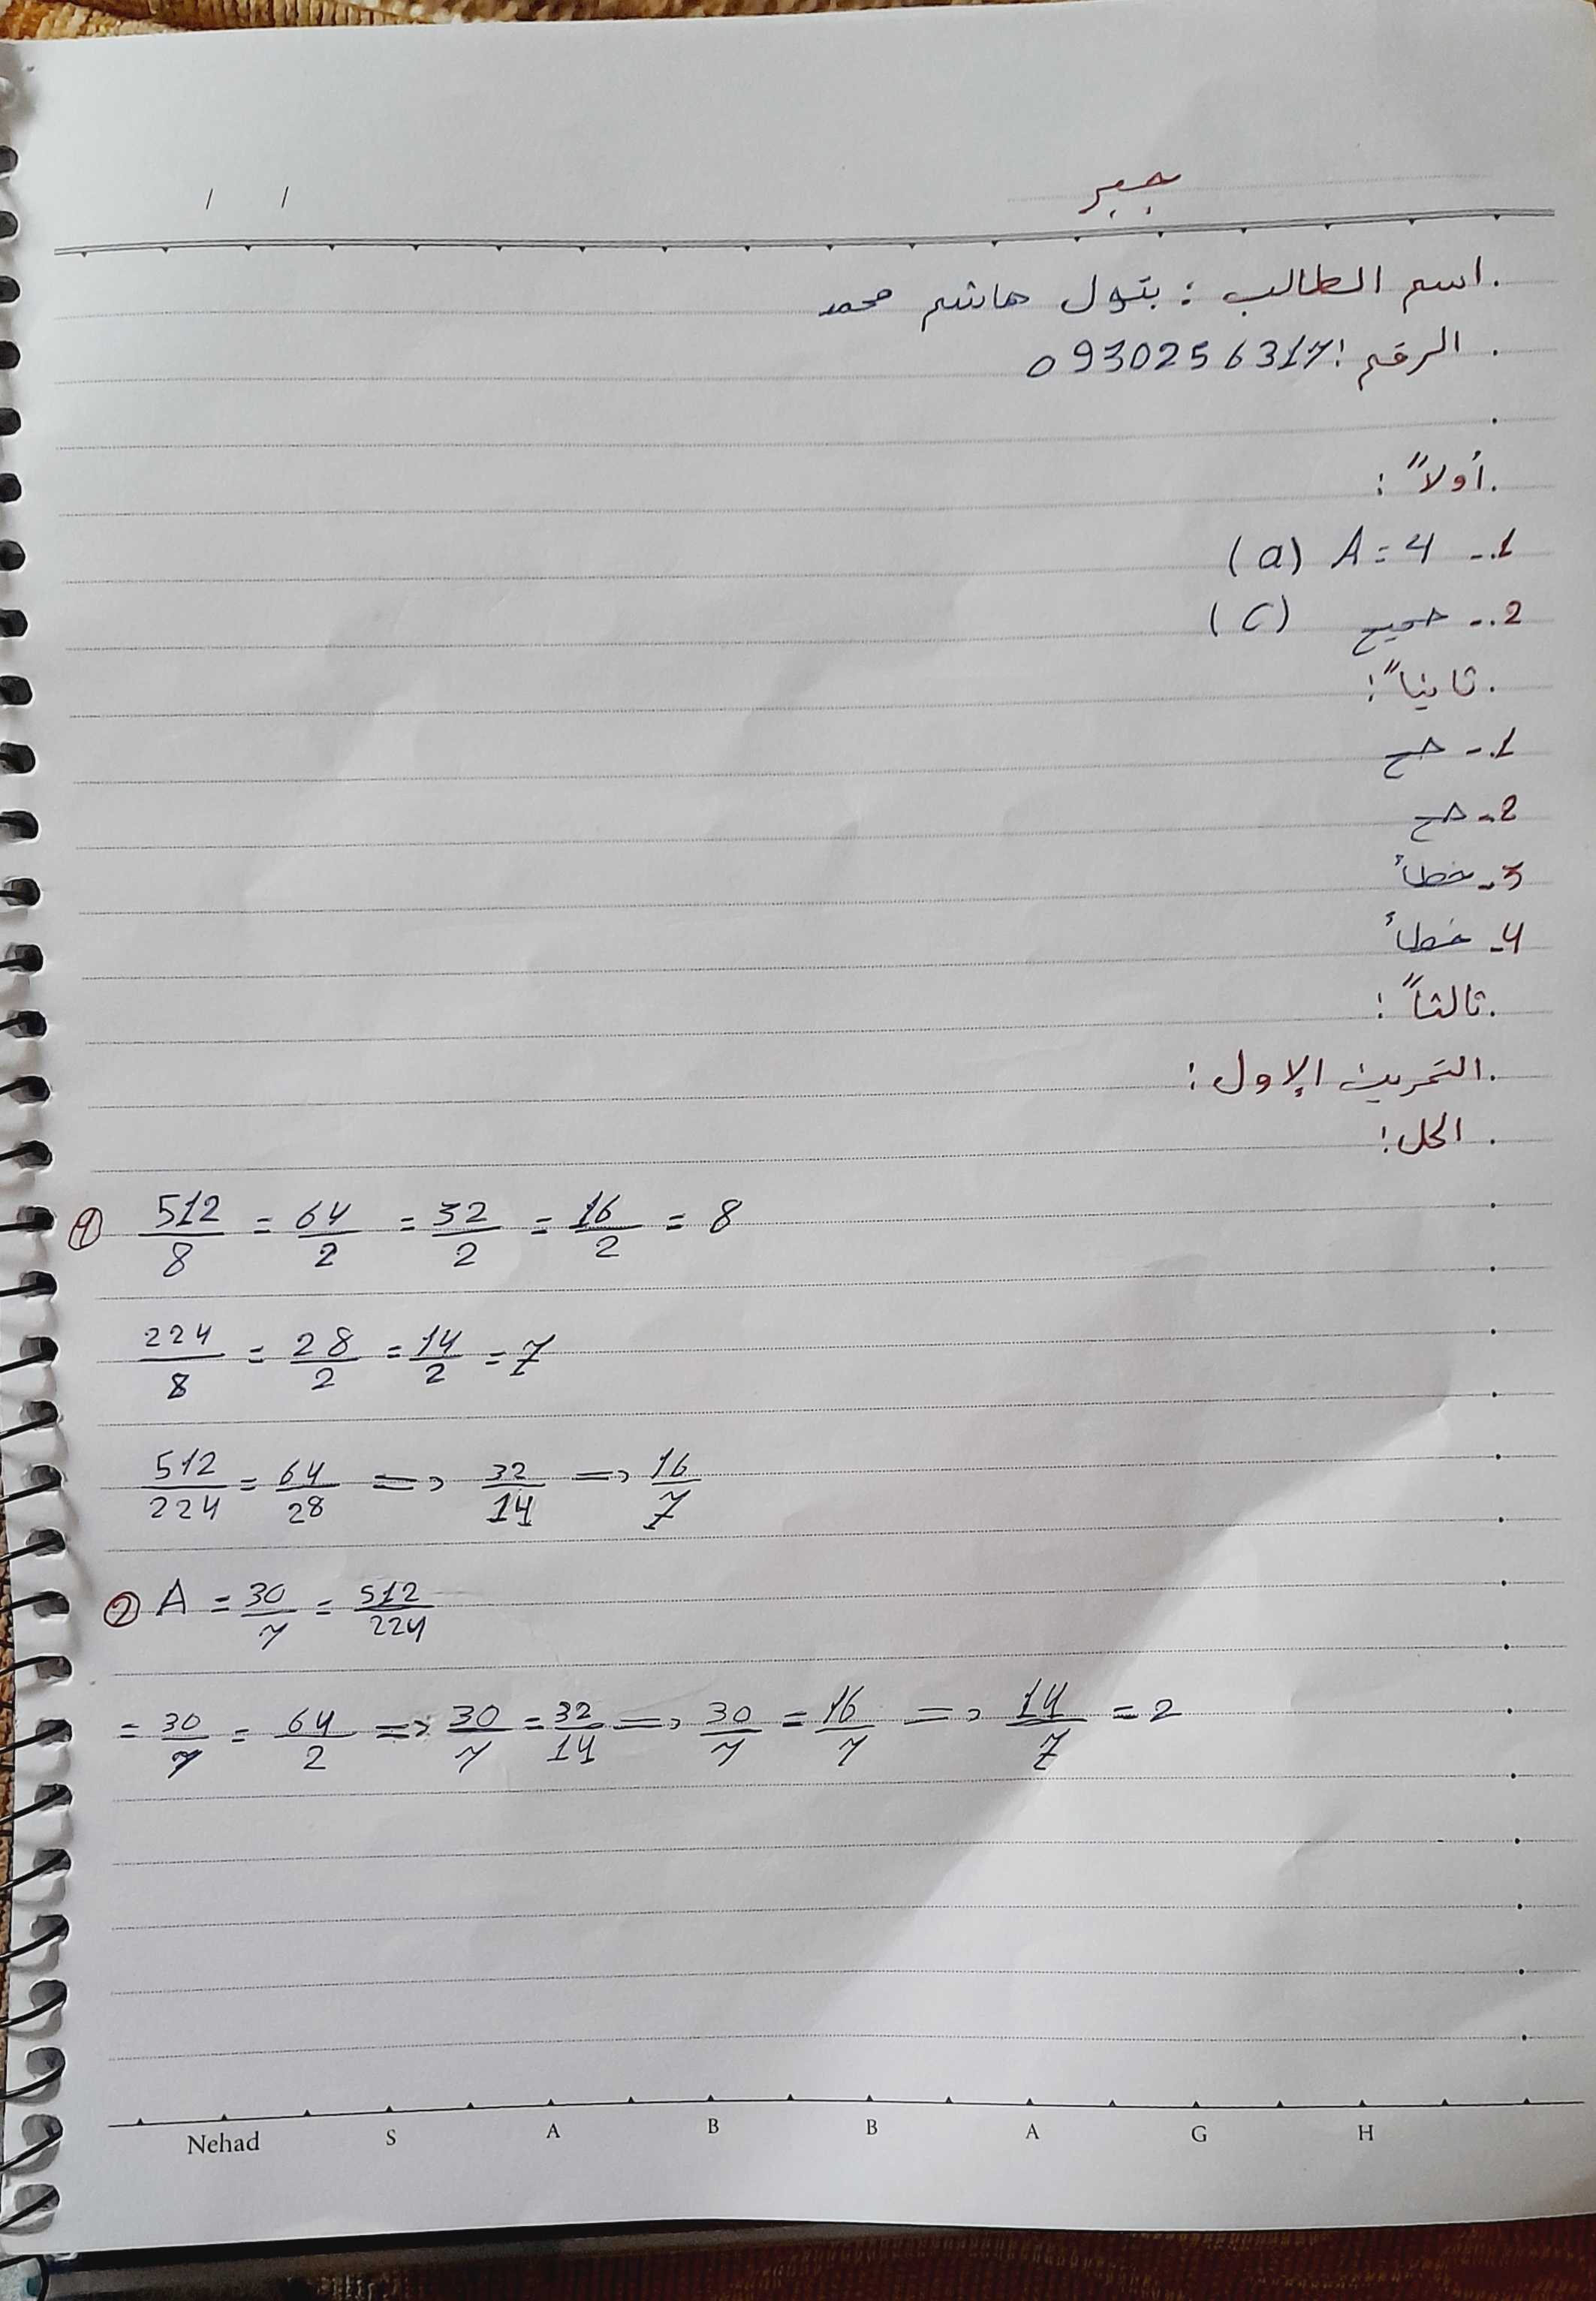 جبر
/ /
اسم الطالب : بتول هاشم محمد
الرقم : 0930256317
أولاً :
1- A = 4 (a)
2- صحيح (C)
ثانياً :
1- صح
2- صح
3- خطأ
4- خطأ
ثالثاً :
التمرين الإول :
الحل :
① 512/8 = 64/2 = 32/2 = 16/2 = 8
224/8 = 28/2 = 14/2 = 7
512/224 = 64/28 => 32/14 => 16/7
② A = 30/7 = 512/224
= 30/7 - 64/2 => 30/7 = 32/14 => 30/7 = 16/7 => 14/7 = 2
Nehad S A B B A G H